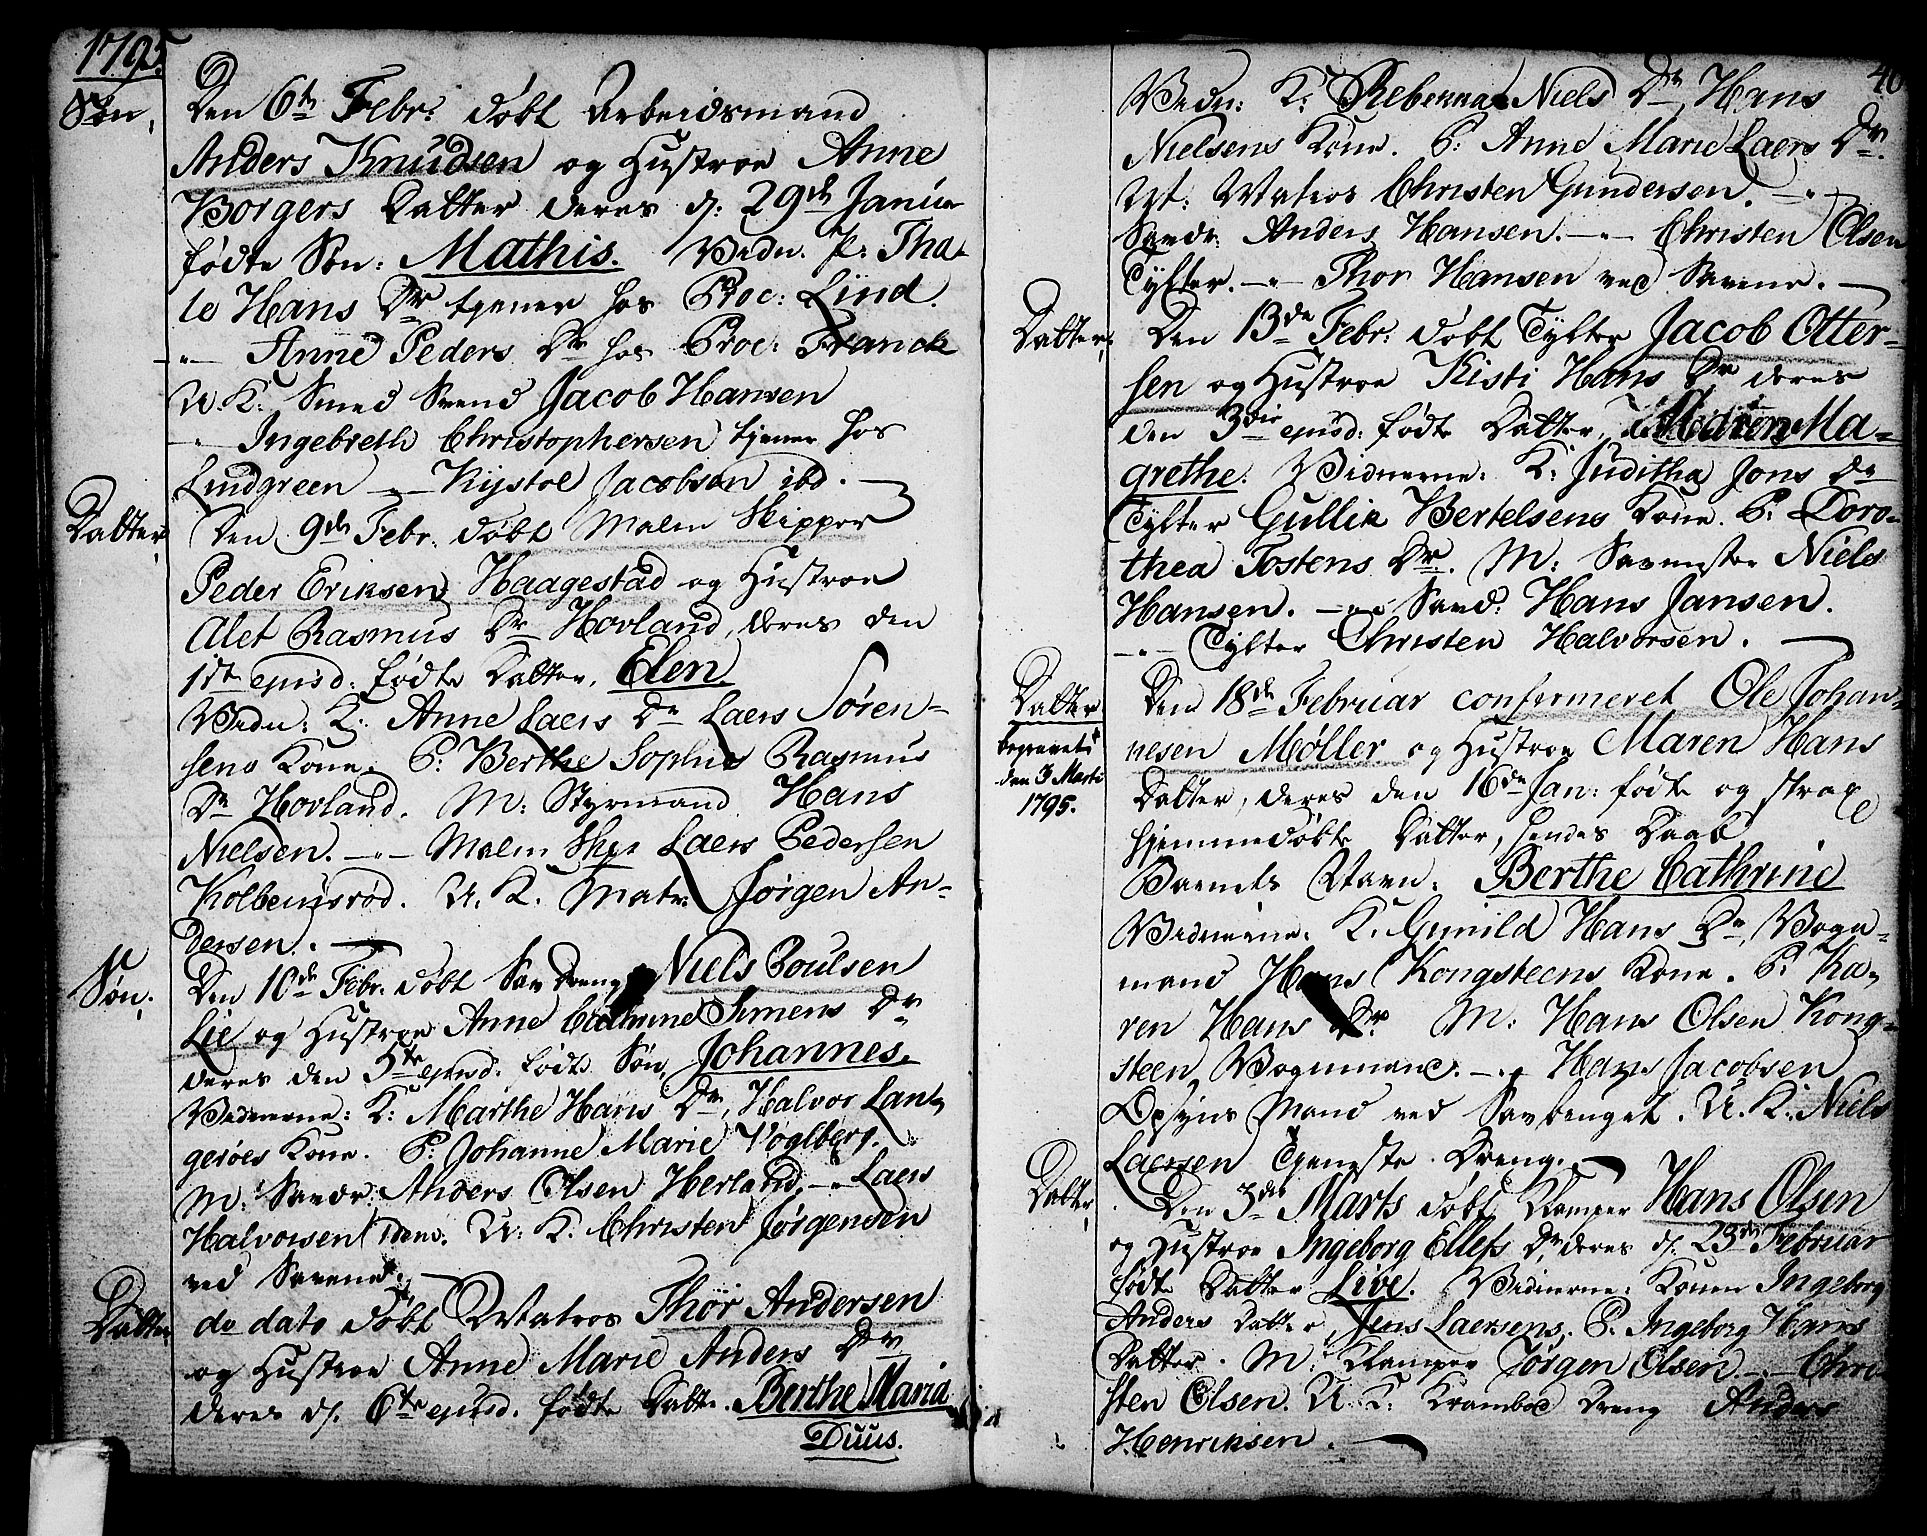 1795.
Søn,
Den 6te Febr: døbt Arbeidsmand
Anders Knudsen og Hustroe Anne
Borgers Datter deres d: 29de Janua
fødte Søn: Mathis. Vidn. P: Tha-
le Hans Dr tjener hos Proc: Lind.
-"- Anne Peders Dr hos Proc: Franck
U. K: Smed Svend Jacob Hansen
-"- Ingebreth Christophersen tjener hos
Lindgreen -"- Kystol Jacobsen ibd.
Datter,
Den 9de Febr. døbt Malm Skipper
Peder Eriksen Haagestad og Hustroe
Alet Rasmus Dr Hovland, deres den
1ste ejusd: fødte Datter, Elen.
Vidn: K: Anne Laers Dr Laers Søren-
sens Kone. P: Berthe Sophie Rasmus
Dr Hovland. M: Styrmand Hans
Nielsen. -"- Malm Skpr Laers Pedersen
Kolbensrød. U. K. Matr: Jørgen An-
dersen.
Søn,
Den 10de Febr. døbt Sav Dreng Niels Poulsen
Lie og Hustroe Anne Cathrine Simens Dr
deres den 5te ejusd. fødte Søn, Johannes.
Vidnerne: K: Marthe Hans Dr, Halvor Lant-
gerøes Kone. P. Johanne Marie Voglberg.
M: Savdr: Anders Olsen Herland, -"- Laers
Halvorsen idem. U. K. Christen Jørgensen
ved Savene.
Datter,
de dato døbt Matros Thor Andersen
og Hustroe Anne Marie Anders Dr
deres d. 6te ejusd. fødte Datter. Berthe Maria
Duus.
40
Vidn: K: Rebekka Niels Dr, Hans
Nielsens Kone. P: Anne Marie Laers Dr.
M: Matros Christen Gundersen. -"-
Savdr Anders Hansen. -"- Christen Olsen
Tylter. -"- Thor Hansen ved Savene.
Datter,
Den 13de Febr: døbt Tylter Jacob Otter-
sen og Hustroe Kisti Hans Dr deres
den 3die ejusd: fødte Datter, Maren Ma-
grethe. Vidnerne: K: Juditha Jons Dr
Tylter Gullik Bertelsens Kone. P: Doro-
thea Tostens Dr. M: Savmester Niels
Hansen. -"- Savd: Hans Jansen.
-"- Tylter Christen Halvorsen.
Datter
begravet
den 3 Marti
1795.
Den 18de Februar confirmeret Ole Johan-
nesen Møller og Hustroe Maren Hans
Datter, deres den 16de Jan: fødte og strax
hjemmedøbte Datter, hendes Daab
Barnets Navn: Berthe Cathrine
Vidnerne: K: Gunild Hans Dr, Vogn-
mand Hans Kongsteens Kone. P: Ka-
ren Hans Dr. M: Hans Olsen Kong-
steen Vognmand. -"- Hans Jacobsen
Opsyns Mand ved Savbruget. U. K. Niels
Laersen Tjeneste Dreng.
Datter,
Den 3de Marts døbt Klamper Hans Olsen
og Hustroe Ingeborg Ellefs Dr, deres d. 23de Februar
fødte Datter Live. Vidnerne: Konen Ingeborg
Anders Datter, Jens Laersens, P. Ingeborg Hans
Datter. M: Klamper Jørgen Olsen. -"- Chri-
sten Olsen. U. K. Krambod Dreng Anders
Henriksen.